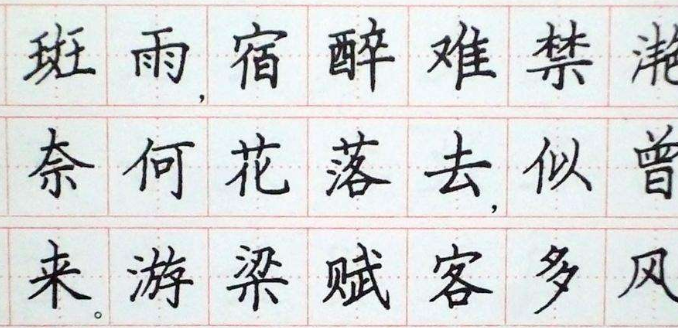 雨,宿醉难禁滟
奈何花落去,似曾
来。游梁赋客多风